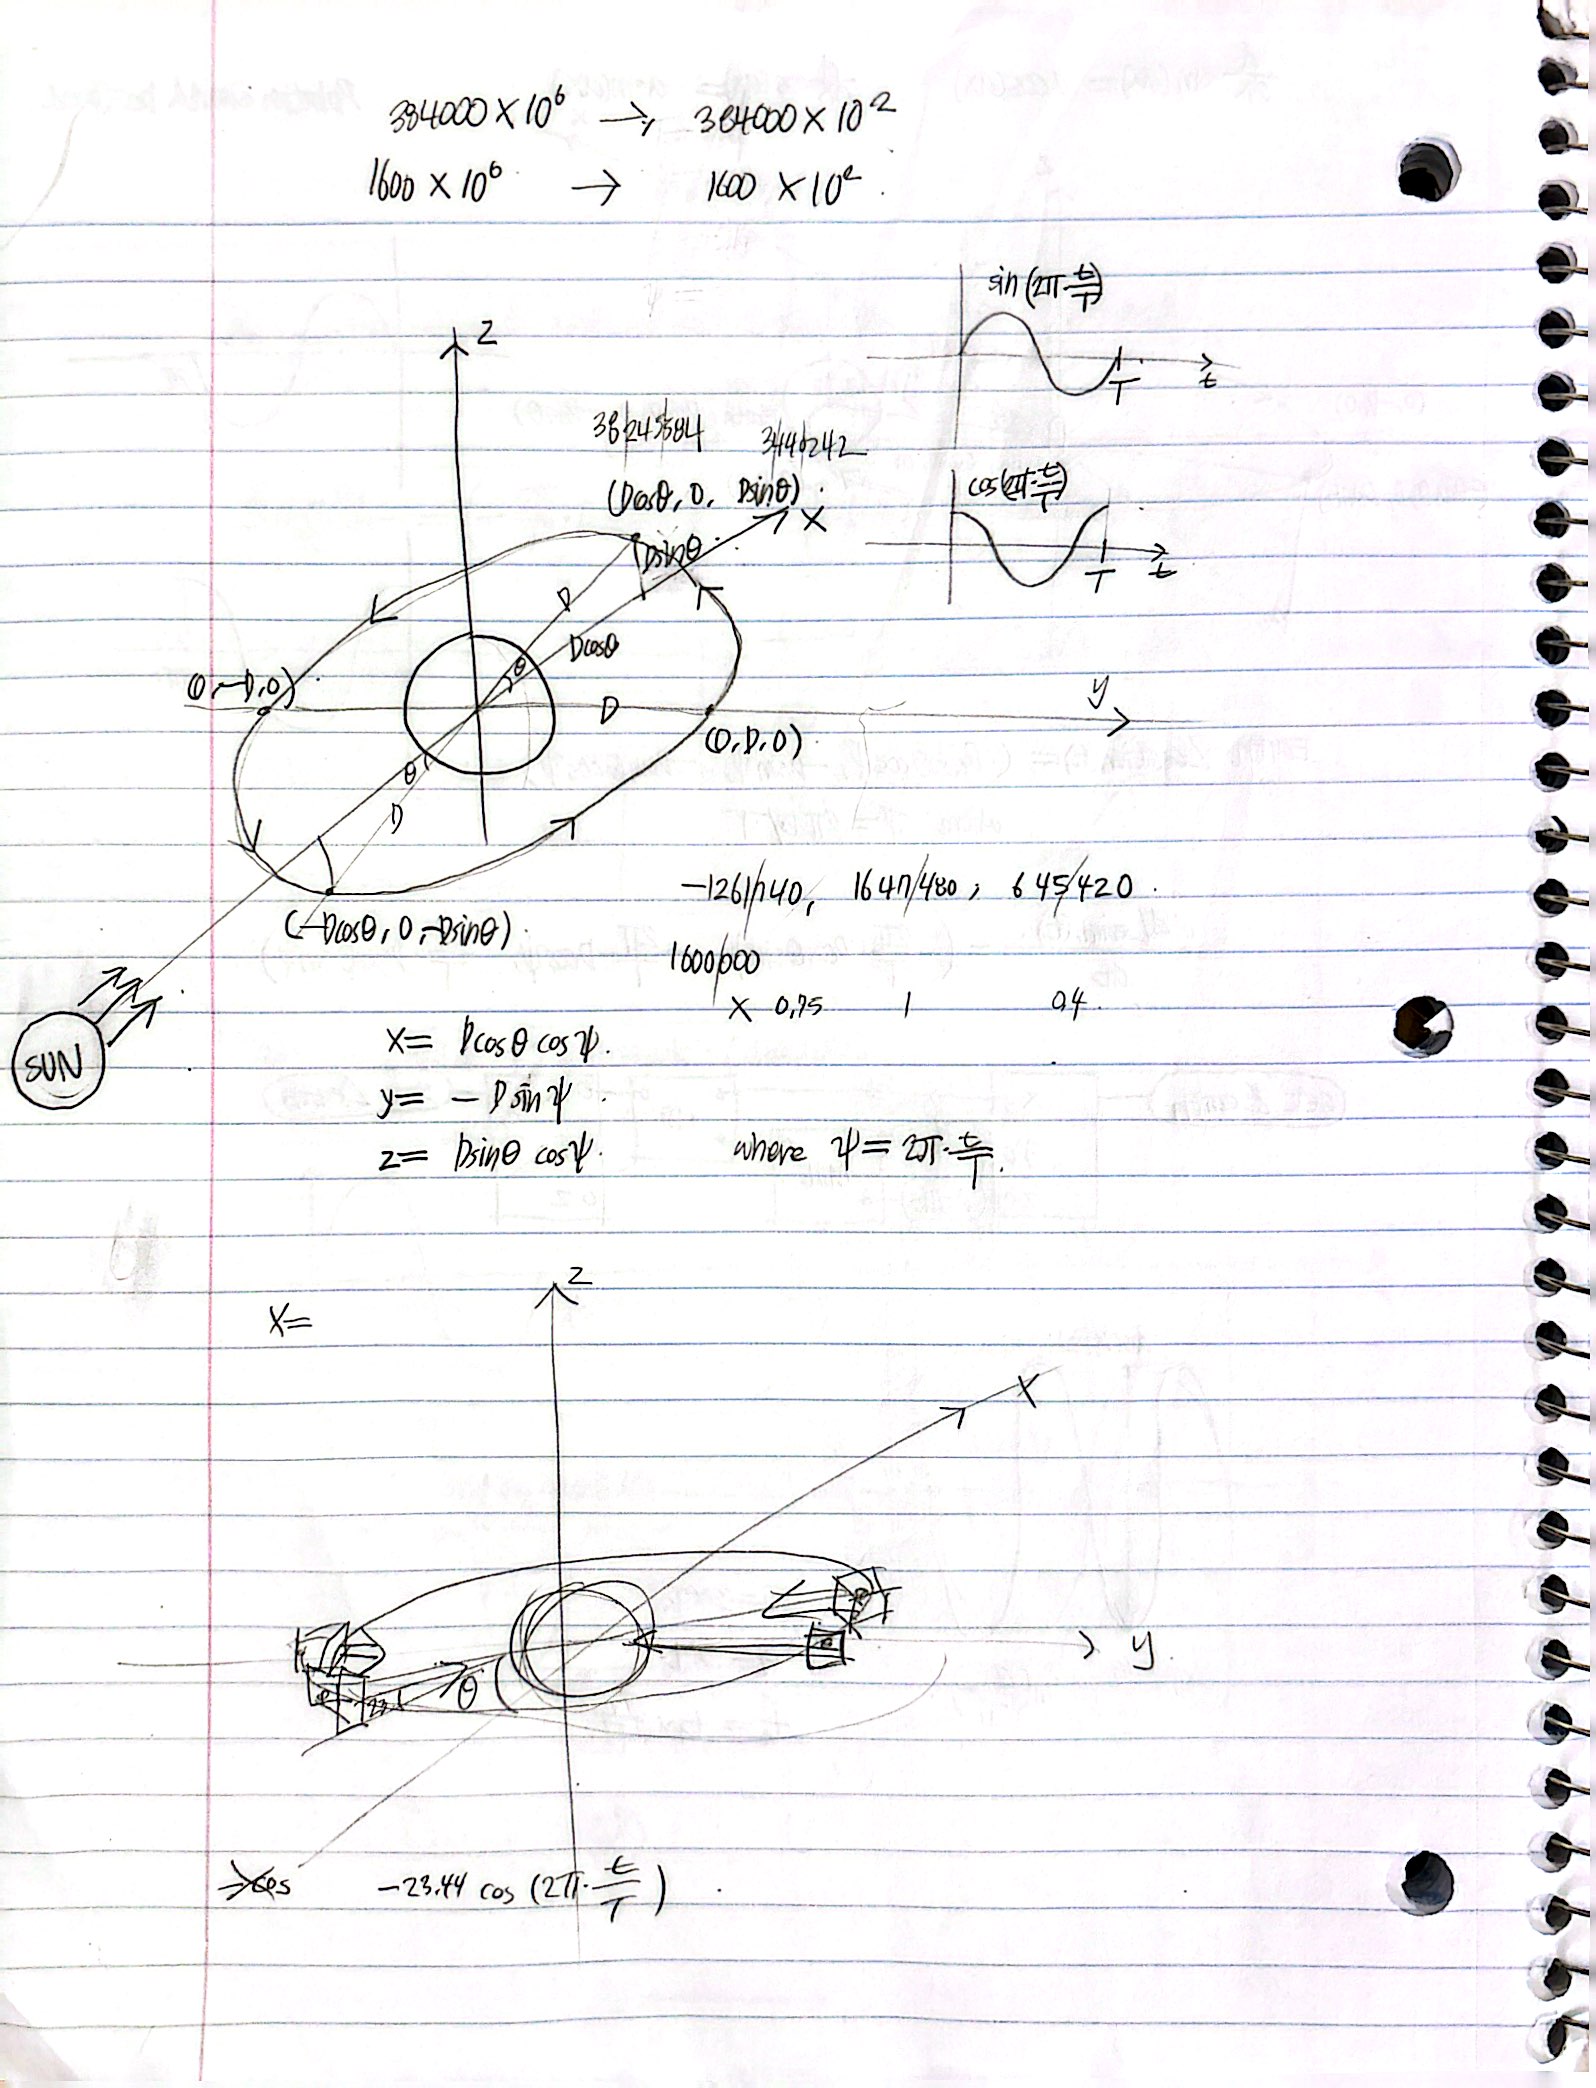 384000 × 10⁶ → 384000 × 10²
1600 × 10⁶ → 1600 × 10²
sin (2π · t/T)
T
t
z
38|245|584 3|446|242
(Dcosθ, 0, Dsinθ)
x
Dsinθ
cos(2π · t/T)
T
t
D
Dcosθ
θ
(0, -D, 0)
D
y
(0, D, 0)
θ
D
(-Dcosθ, 0, -Dsinθ)
-1261/740, 1647/480, 645/420
1600/000
× 0.75 1 0.4
SUN
x = Dcosθ cosψ.
y = - D sinψ
z = Dsinθ cosψ. where ψ = 2π · t/T.
z
x =
x
y
θ
-23.44 cos (2π · t/T)